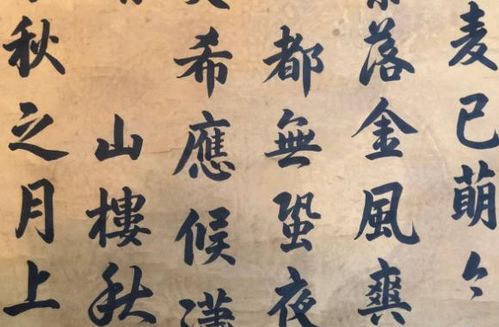 麦已萌々
落金風爽
都無蛩夜
希應候
山樓秋
秋之月上